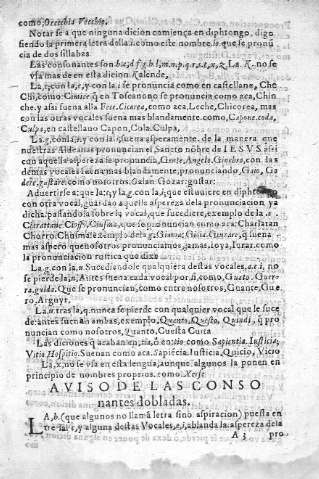 como, Vecchie.
Notar se a que ninguna dicion comiença en diphtongo, digo
siendo la primera letra de la i. como este nombre. ie que le pronũ
cia de dos sillabas.
Las consonantes son b.c.d.f.g.h.l.m.n.p.q.r.s.t.u.x.z. La K. no se
vsa mas de en esta dicion. Kalende,
La, c, con la, e, y con la, i, se pronuncia como en castellano, Che
Chi, como en Toscano se pronuncia como aca, Chin
che, y assi suena alla Cicerea, como aca. Leche, Chicorea, mas
con las otras vocales suena mas blandamente como, Capone, coda,
Culpa, en castellano Capon, Cola, Culpa,
La, g, con la, e, y con la, i, suena asperamente. de la manera que
nuestras Aldeanas pronuncian el Sancto nõbre de IESVS assi
con aquella aspereza se pronuncia, Gente, Angelo, Ginebra, con las de
mas vocales suena mas blandamente, pronunciando
como nosotros. Galan Gozar, gustar.
Aduertirse a: que la, c, y la, g, con la, i, que estuuiere en diphtongo
con otra vocal, guardan aquella aspereza de la pronunciacion ya
dicha, passando la sobre la vocal, que sucediere, exemplo de la
que se pronuncian aca: Charlatan
Chorro, Chusma: exemplo de la g. que suena
mas aspero que nosotros pronunciamos, jamas, joya, Iurar. como
la pronunciacion rustica que dixe
La, g, con la, n Sucediendole qualquiera destas vocales, a.e.i. no
se pierde la, n, Antes suena cada vocal por si, como, Guerra
guida. Que se pronuncian, como entre nosotros, Guante, Gue
rro, Argoyr.
La, u tras la, q, nunca se pierde con qualquier vocal que le suce
de: antes suenan ambas, exemplo, Quanto, Questo, Quindi, q̃ pro
nuncian como nosotros, quanto, Cuesta Curta
Las diciones q̃ acaban en, tia, ò en tio como Sapientia. Iusticia,
Vitio Hospitio. Suenan como aca. Sapiẽcia, Iusticia, Quicio, Vicio
La, x, no se vsa en esta lengua, aunque algunos la ponen en
principio de nombres proprios. como Xerse
AVISO DE LAS CONSO
nantes dobladas.
LA, h. (que algunos no llamã letra sino aspiracion) puesta en
tre la c, y alguna destas Vocales, e, i, ablanda la aspereza dela
A 3 pro